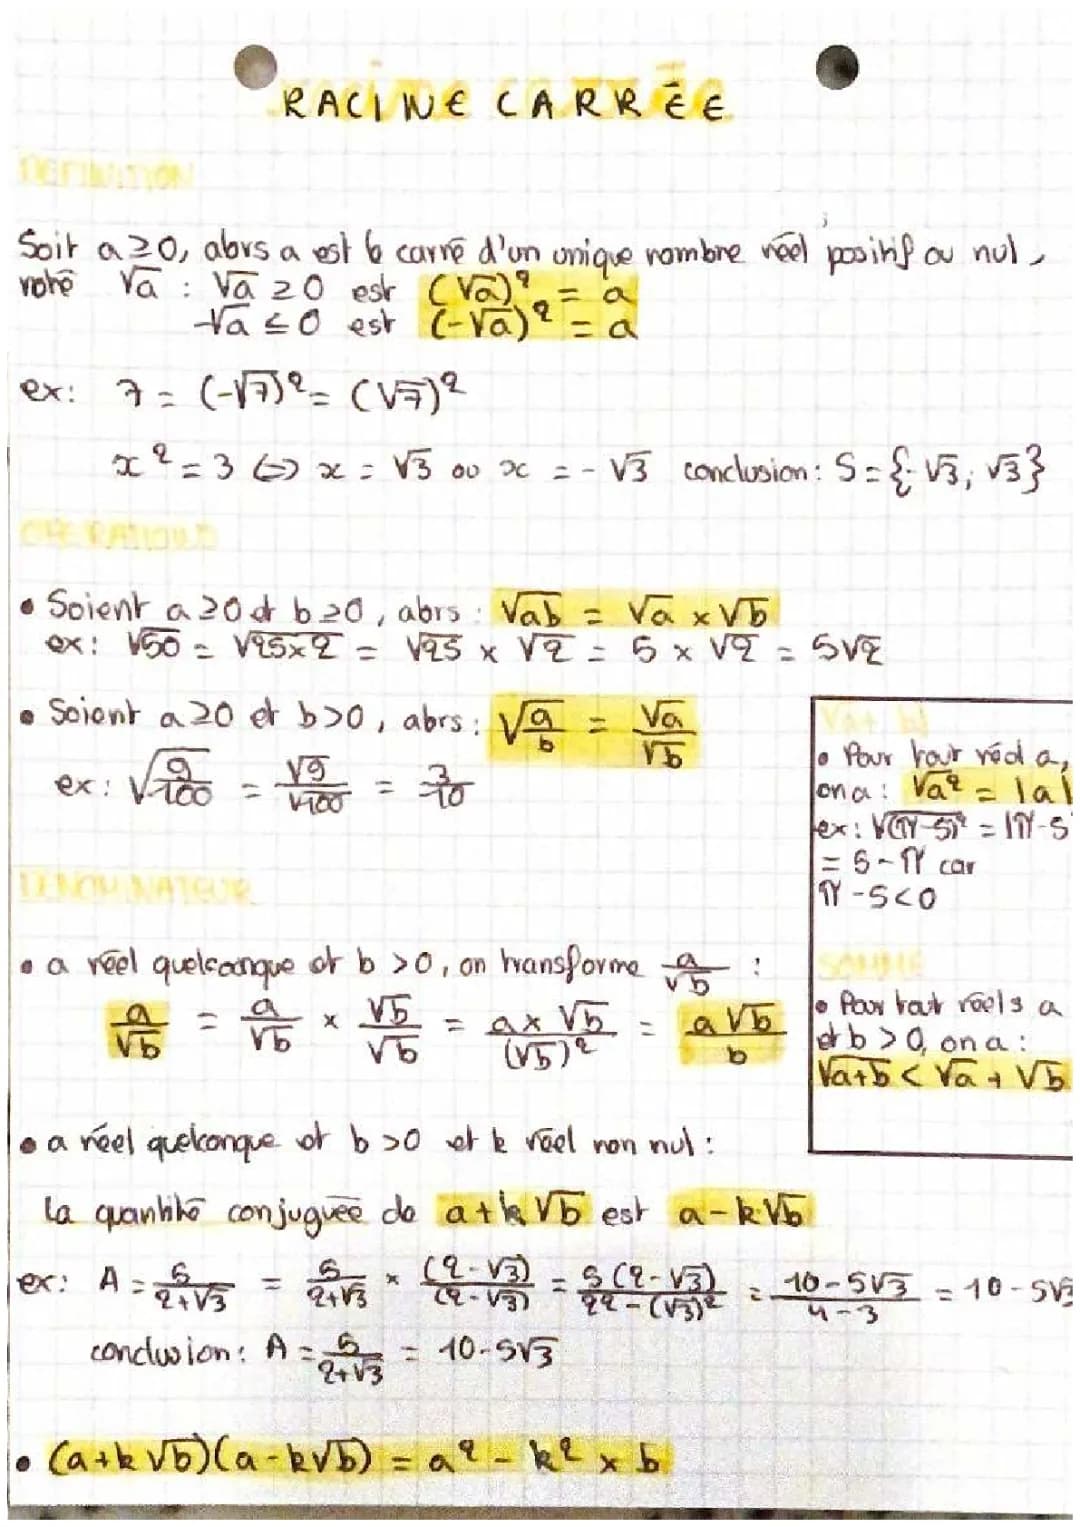 RACINE CARRÉE
DEFINITION
Soit a ≥ 0, alors a est le carré d'un unique nombre réel positif ou nul,
noté √a : √a ≥ 0 est (√a)² = a
-√a ≤ 0 est (-√a)² = a
ex: 7 = (-√7)² = (√7)²
x² = 3 ⇔ x = √3 ou x = -√3 conclusion: S = {-√3; √3}
OPERATIONS
• Soient a ≥ 0 et b ≥ 0, alors : √ab = √a × √b
ex: √50 = √25×2 = √25 × √2 = 5 × √2 = 5√2
• Soient a ≥ 0 et b > 0, alors : √(a/b) = √a/√b
ex: √(9/100) = √9/√100 = 3/10
DENOMINATEUR
• a réel quelconque et b > 0, on transforme a/√b :
a/√b = a/√b × √b/√b = a×√b/(√b)² = a√b/b
• a réel quelconque et b > 0 et k réel non nul :
la quantité conjuguée de a+k√b est a-k√b
ex: A = 5/2+√3 = 5/2+√3 × (2-√3)/(2-√3) = 5(2-√3)/2²-(√3)² = 10-5√3/4-3 = 10-5√3
conclusion: A = 5/2+√3 = 10-5√3
• (a+k√b)(a-k√b) = a² - k² × b
• Pour tout réel a,
on a : √a² = |a|
ex: √(π-5)² = |π-5
= 5-π car
π-5<0
SOMME
• Pour tout réels a
et b > 0, on a :
√a+b < √a + √b